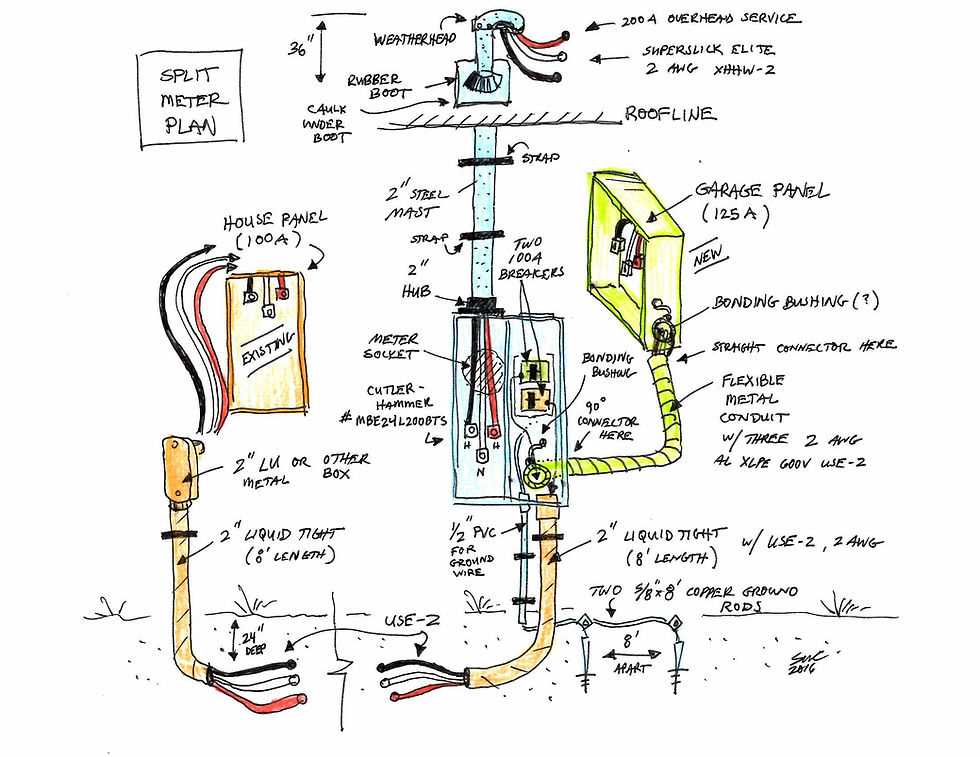 SPLIT
METER
PLAN
36"
WEATHERHEAD
200A OVERHEAD SERVICE
SUPERSLICK ELITE
2 AWG XHHW-2
RUBBER
BOOT
CAULK
UNDER
BOOT
ROOFLINE
STRAP
2" STEEL
MAST
STRAP
2"
HUB
TWO
100A
BREAKERS
GARAGE PANEL
(125A)
NEW
HOUSE PANEL
(100A)
EXISTING
BONDING BUSHING (?)
STRAIGHT CONNECTOR HERE
METER
SOCKET
CUTLER-
HAMMER
#MBE24L200BTS
BONDING
BUSHING
90°
CONNECTOR
HERE
FLEXIBLE
METAL
CONDUIT
W/ THREE 2 AWG
AL XLPE 600V USE-2
H
N
H
2" LU OR OTHER
METAL BOX
2" LIQUID TIGHT
(8' LENGTH)
1/2" PVC
FOR
GROUND
WIRE
2" LIQUID TIGHT
(8' LENGTH)
W/ USE-2, 2 AWG
TWO 5/8"x8' COPPER GROUND
RODS
24"
DEEP
USE-2
8'
APART
2016